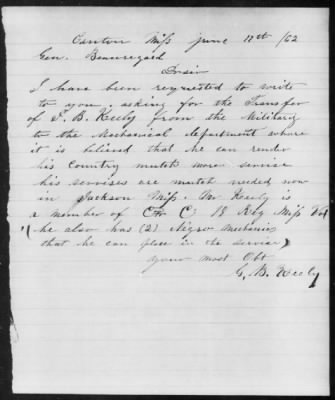 Canton Miss June 12th /62
Gen. Beauregard
Dr sir
I have been requested to write
to you, asking for the Transfer
of J. B. Keely from the Military
to the Mechanical department where
it is beliend that he can render
his Country mutch more servise
his servises are mutch needed now
in Jackson Miss. Mr Keely is
a member of Co C; Reg Miss Vol
(he also has (2) Negro Mechanics
that he can place in the service)
your most Obt
G. B. Keely